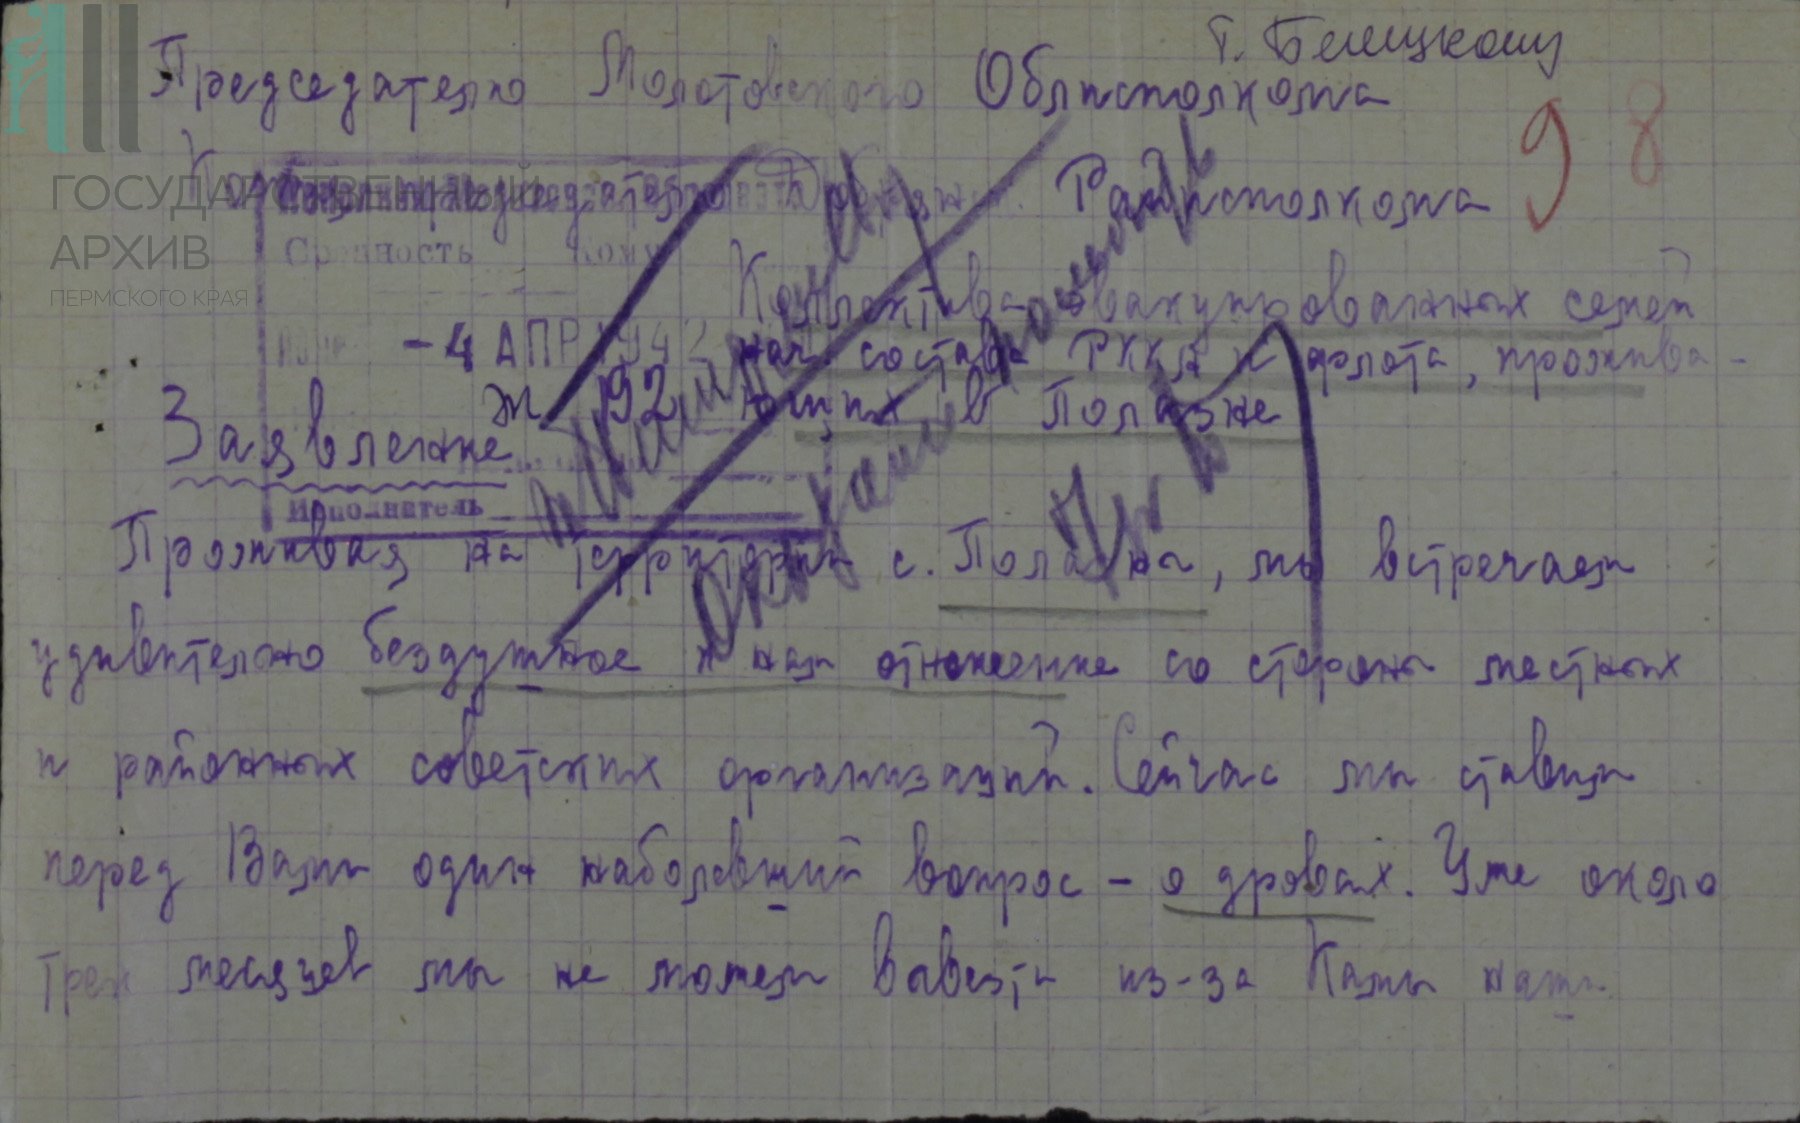 т. Белецкому
Председателю Молотовского Облисполкома
9 8
ГОСУДАРСТВЕННЫЙ
АРХИВ
ПЕРМСКОГО КРАЯ
Копия председателю Райисполкома
Срочность Кому
Коллектива эвакуированных семей
- 4 АПР 1942 нач. состава РККА и флота, прожива-
ж 92 ющих в Полазне
Заявление
Исполнитель
Проживая на территории с. Полазна, мы встречаем
удивительно бездушное к нам отношение со стороны местных
и районных советских организаций. Сейчас мы ставим
перед Вами один наболевший вопрос - о дровах. Уже около
трех месяцев мы не можем вывезти из-за Камы наши